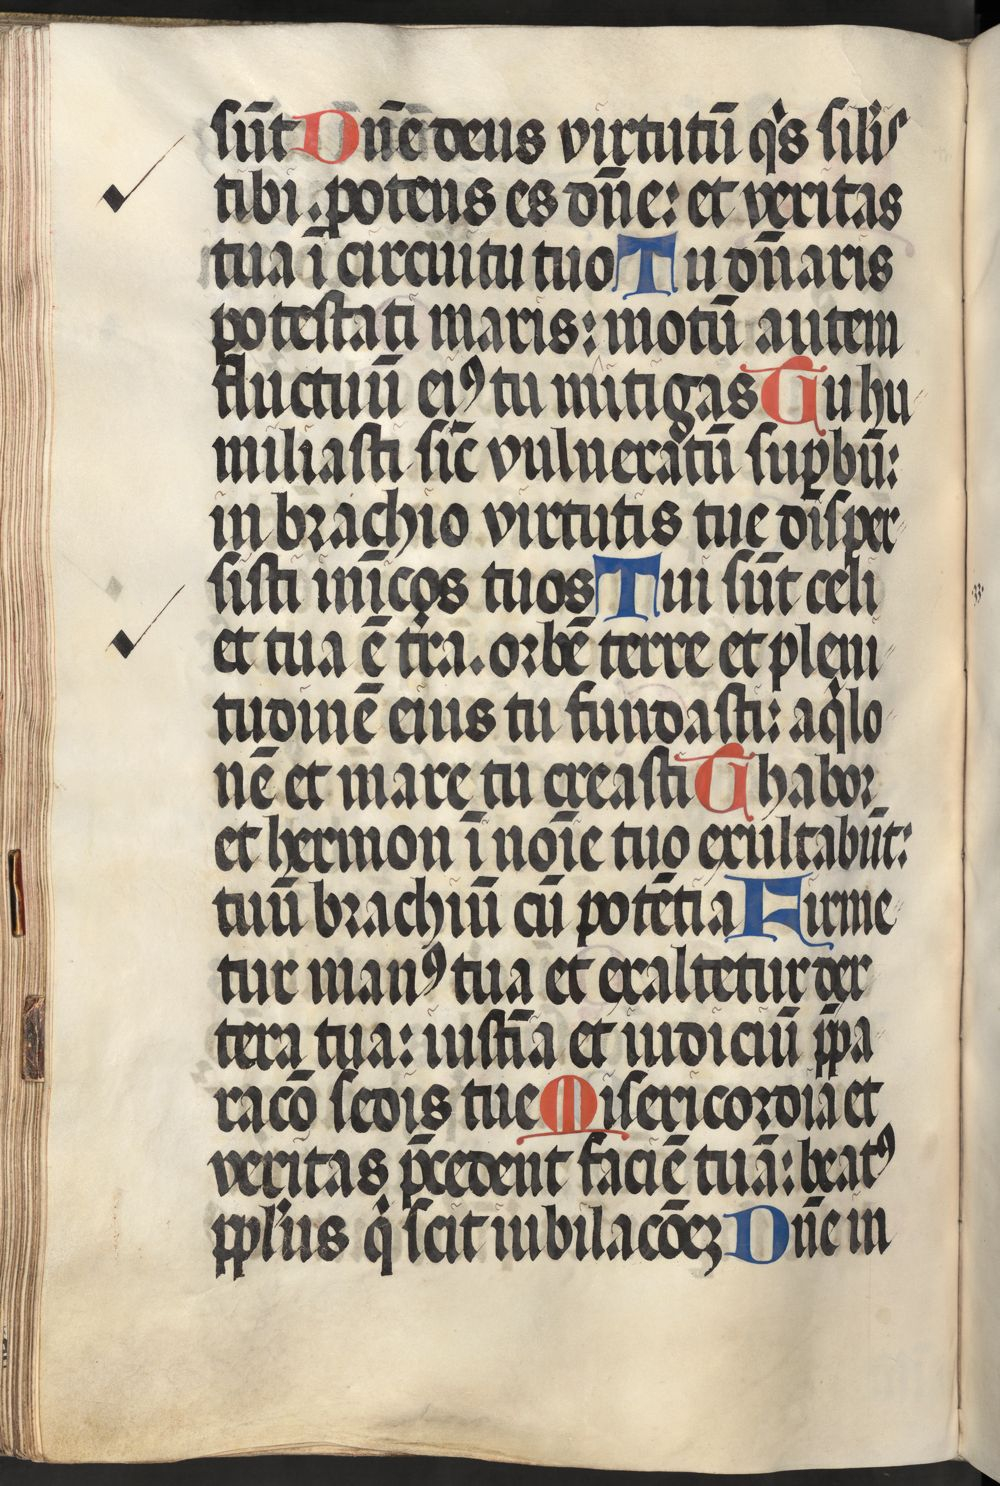 sūt Dn̄e deus virtutū q̇s sil̄is
tibi. potens es dn̄e: et veritas
tua ī circuitu tuo Tu dn̄aris
potestati maris: motū autem
fluctuū eiꝰ tu mitigas Tu hu
miliasti sic̄ vulneratū suꝑbū:
in brachio virtutis tue disper
sisti inīcos tuos Tui sūt celi
et tua ē tr̄a. orbē terre et pleni
tudinē eius tu fundasti: aq̇lo
nē et mare tu creasti Thabor
et hermon ī noīe tuo exultabūt:
tuū brachiū cū potētia Firme
tur manꝰ tua et exaltetur dex
tera tua: iustīa et iudiciū p̄pa
racō sedis tue Misericordia et
veritas p̄cedent faciē tuā: beatꝰ
ppl̄us q̇ scit iubilacōeꝫ Dn̄e in